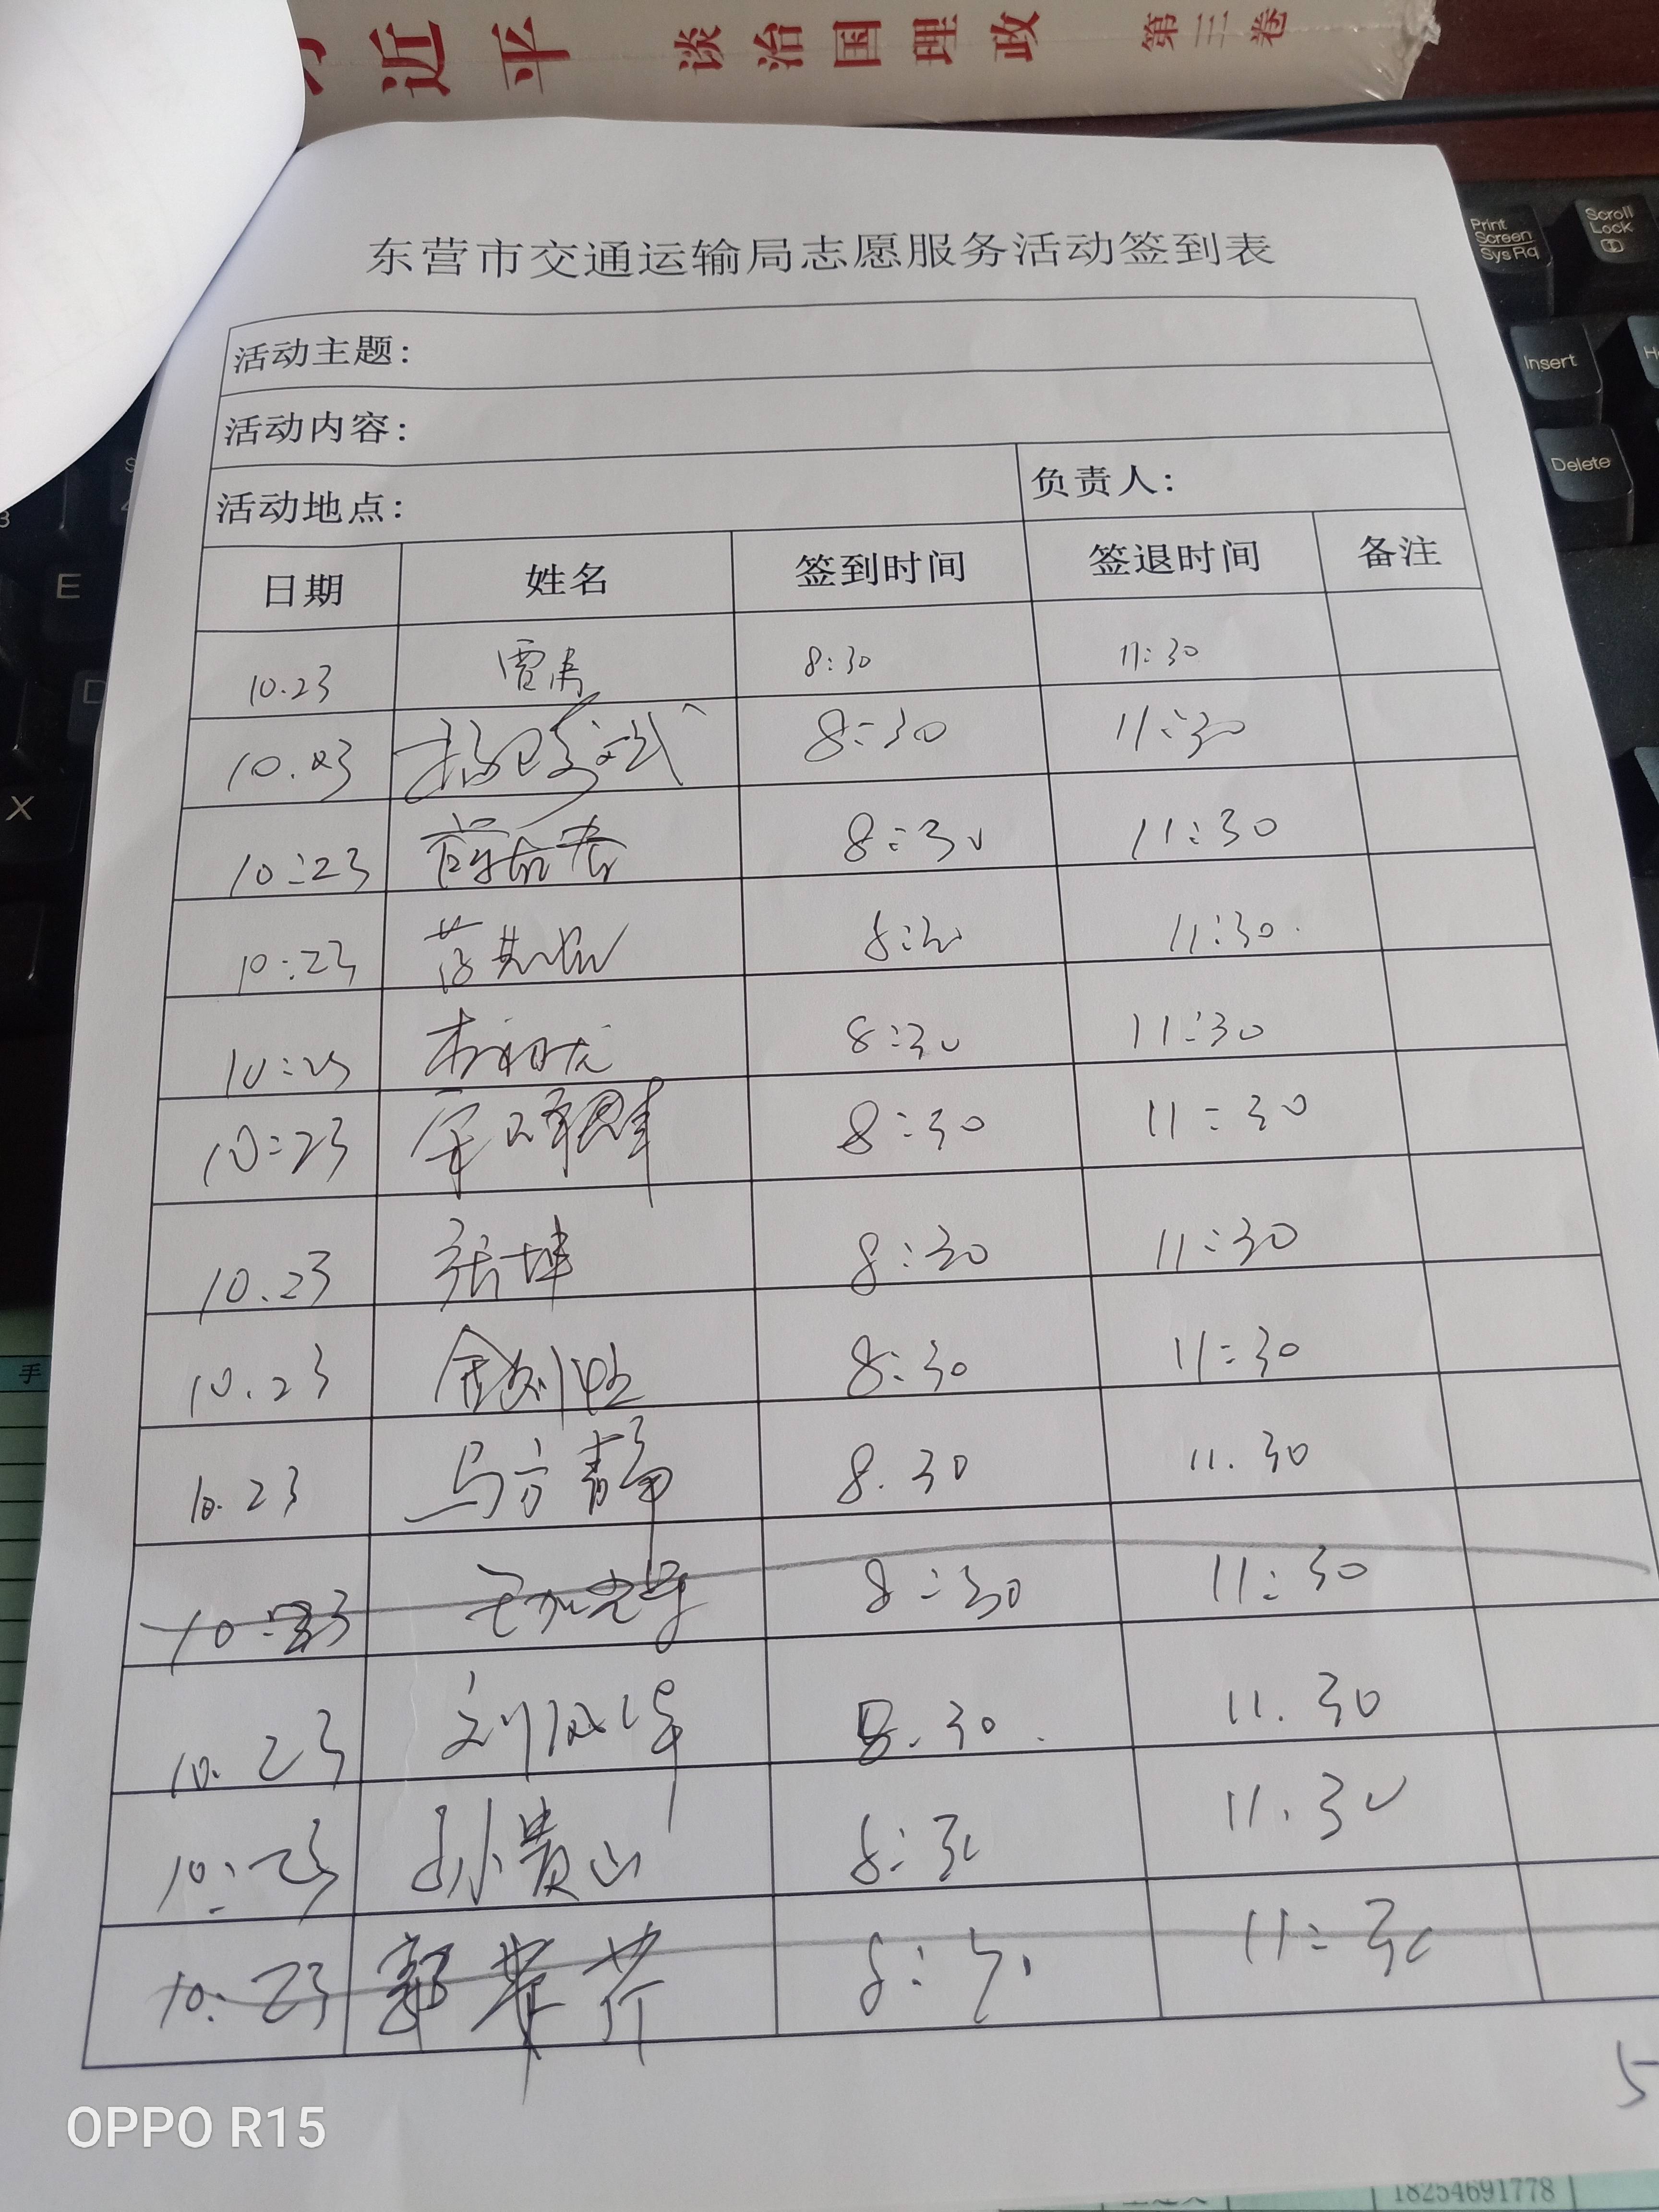 近平 谈治国理政 第三卷
Print Screen SysRq
Scroll Lock
Insert
Delete
E
X
手
东营市交通运输局志愿服务活动签到表
活动主题：
活动内容：
活动地点： 负责人：
日期 姓名 签到时间 签退时间 备注
10.23 贾涛 8:30 11:30
10.23 8:30 11:30
10:23 8:30 11:30
10:23 8:30 11:30
10:23 8:30 11:30
10:23 8:30 11:30
10.23 张坤 8:30 11:30
10.23 8:30 11:30
10.23 马方静 8.30 11.30
10:23 8:30 11:30
10.23 8.30 11.30
10:23 孙贵山 8:30 11.30
10:23 郭苹芹 8:30 11:30
5
OPPO R15
18254691778